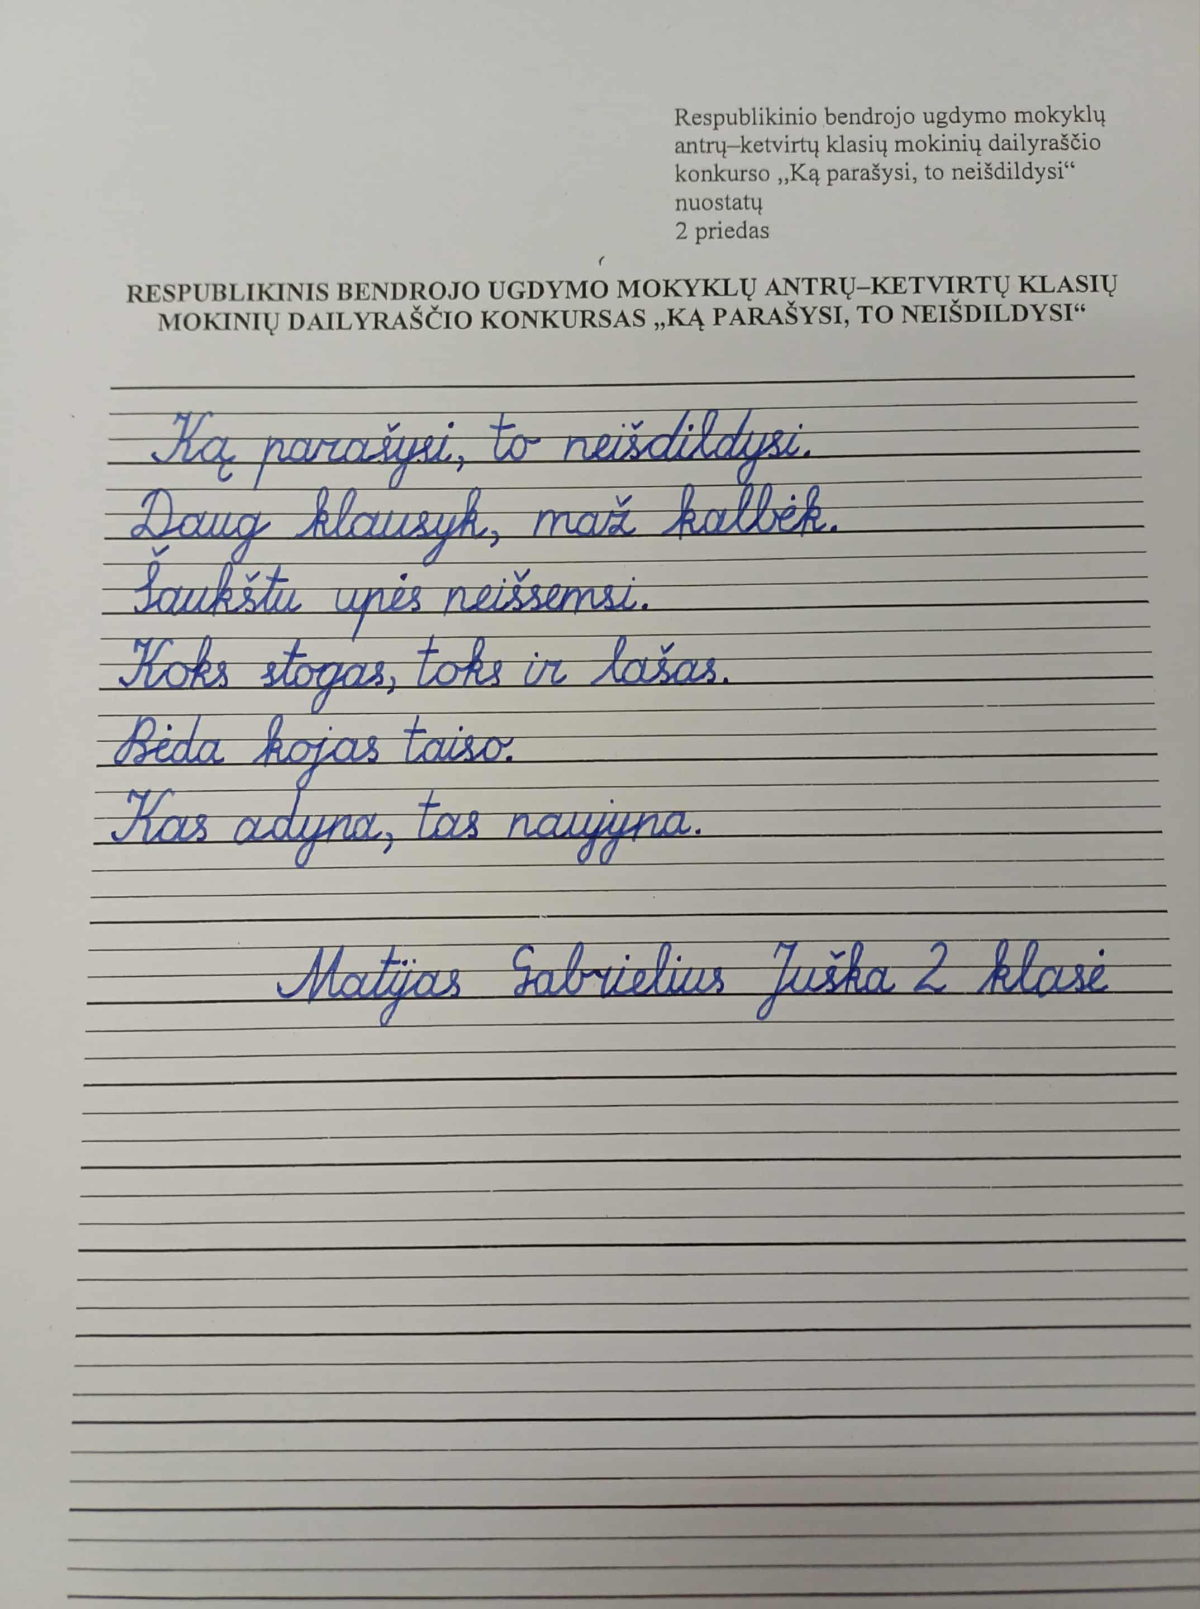 Respublikinio bendrojo ugdymo mokyklų
antrų–ketvirtų klasių mokinių dailyraščio
konkurso „Ką parašysi, to neišdildysi“
nuostatų
2 priedas
RESPUBLIKINIS BENDROJO UGDYMO MOKYKLŲ ANTRŲ–KETVIRTŲ KLASIŲ
MOKINIŲ DAILYRAŠČIO KONKURSAS „KĄ PARAŠYSI, TO NEIŠDILDYSI“
Ką parašysi, to neišdildysi.
Daug klausyk, maž kalbėk.
Šaukštu upės neišsemsi.
Koks stogas, toks ir lašas.
Bėda kojas taiso.
Kas adyna, tas naujyna.
Matijas Gabrielius Juška 2 klasė